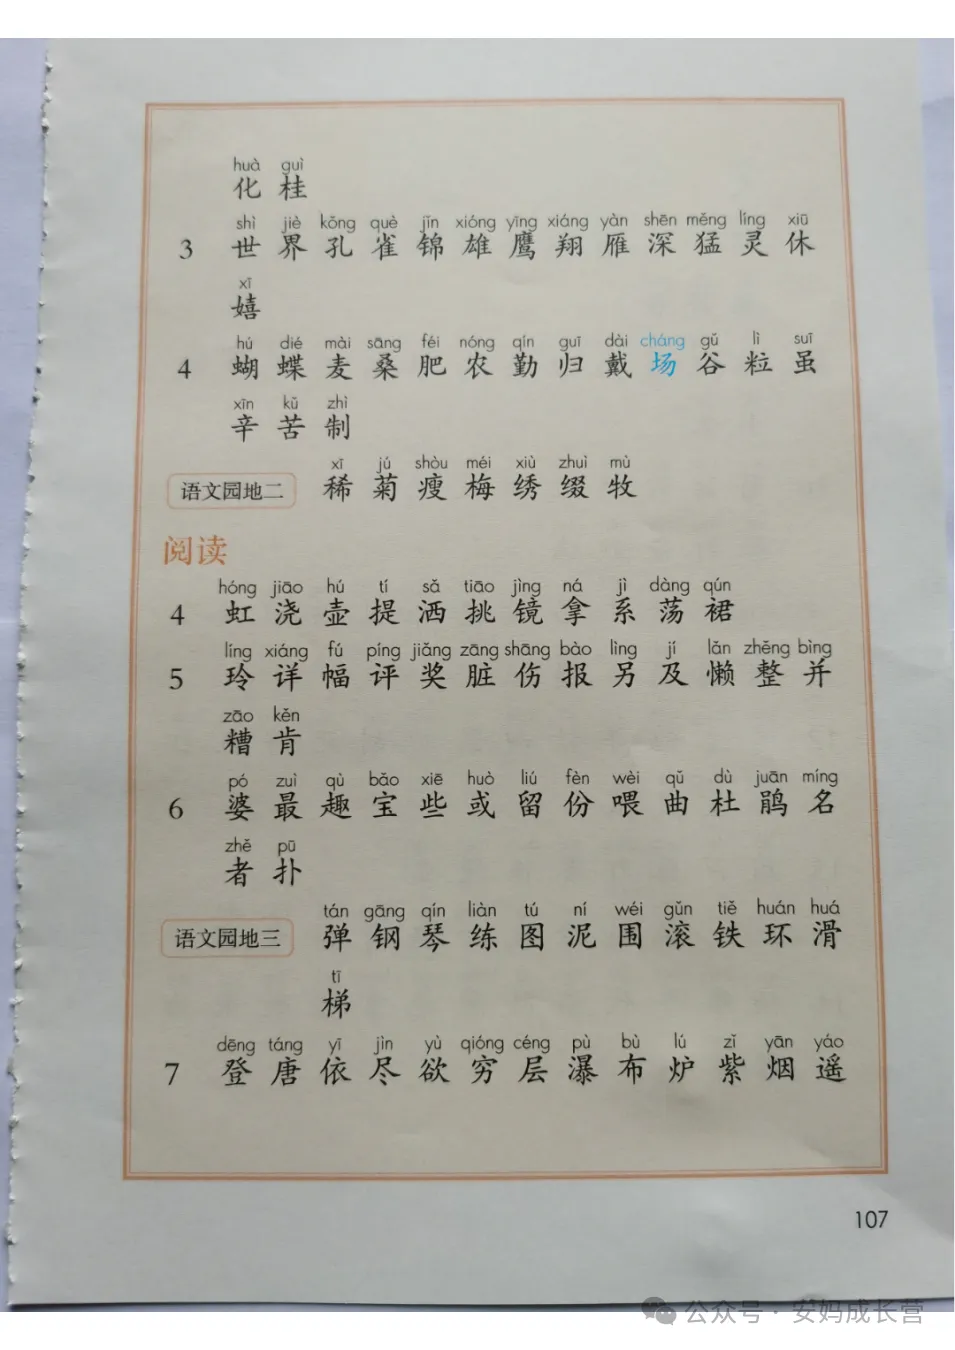 huà guì
化 桂
shì jiè kǒng què jǐn xióng yīng xiáng yàn shēn měng líng xiū
3 世 界 孔 雀 锦 雄 鹰 翔 雁 深 猛 灵 休
xī
嬉
hú dié mài sāng féi nóng qín guī dài cháng gǔ lì suī
4 蝴 蝶 麦 桑 肥 农 勤 归 戴 场 谷 粒 虽
xīn kǔ zhì
辛 苦 制
xī jú shòu méi xiù zhuì mù
语文园地二 稀 菊 瘦 梅 绣 缀 牧
阅读
hóng jiāo hú tí sǎ tiāo jìng ná jì dàng qún
4 虹 浇 壶 提 洒 挑 镜 拿 系 荡 裙
líng xiáng fú píng jiǎng zāng shāng bào lìng jí lǎn zhěng bìng
5 玲 详 幅 评 奖 脏 伤 报 另 及 懒 整 并
zāo kěn
糟 肯
pó zuì qù bǎo xiē huò liú fèn wèi qǔ dù juān míng
6 婆 最 趣 宝 些 或 留 份 喂 曲 杜 鹃 名
zhě pū
者 扑
tán gāng qín liàn tú ní wéi gǔn tiě huán huá
语文园地三 弹 钢 琴 练 图 泥 围 滚 铁 环 滑
tī
梯
dēng táng yī jìn yù qióng céng pù bù lú zǐ yān yáo
7 登 唐 依 尽 欲 穷 层 瀑 布 炉 紫 烟 遥
107
公众号 · 安妈成长营